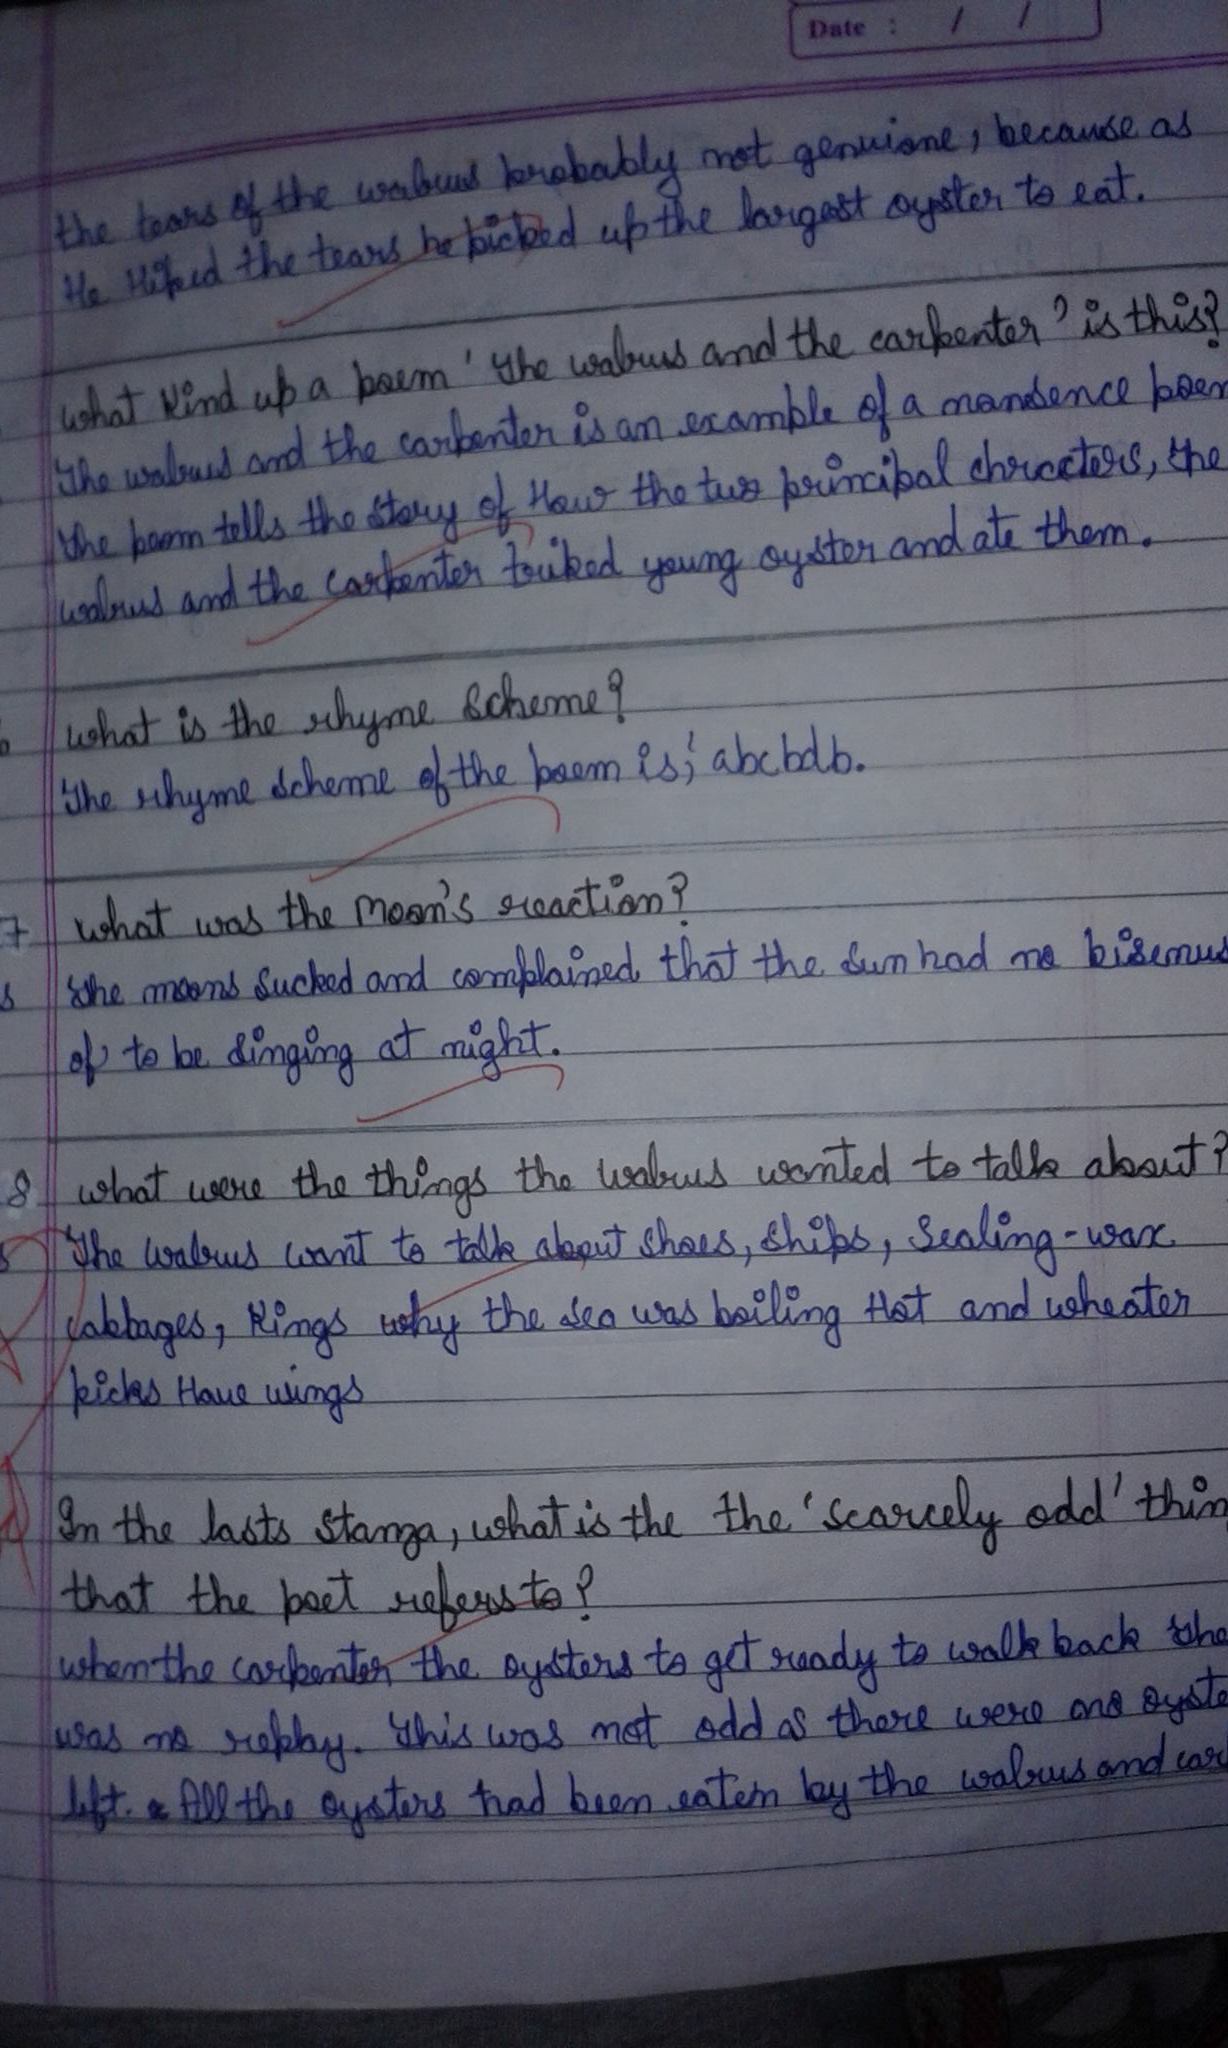 Date : / /
the tears of the walrus probably not genuione, because as
He wiped the tears he picked up the largest oyster to eat.
what kind up a poem 'the walrus and the carpenter' is this?
The walrus and the carpenter is an example of a nondence poem
the poem tells the story of How the two principal chrecters, the
walrus and the carpenter touked young oyster and ate them.
what is the rhyme scheme?
The rhyme scheme of the poem is; abcbdb.
7 what was the moon's reaction?
s The moons sucked and complained that the sun had no bisenus
of to be singing at night.
8 what were the things the walrus wanted to talk about?
s The walrus want to talk about shoes, ships, Sealing-wax
cabbages, kings why the sea was boiling Hot and wheater
picks Have wings
In the lasts stanza, what is the the 'scarcely odd' thin
that the poet refers to?
when the carpenter the oysters to get ready to walk back the
was no replay. This was not odd as there were one oyste
left. All the oysters had been eaten by the walrus and car